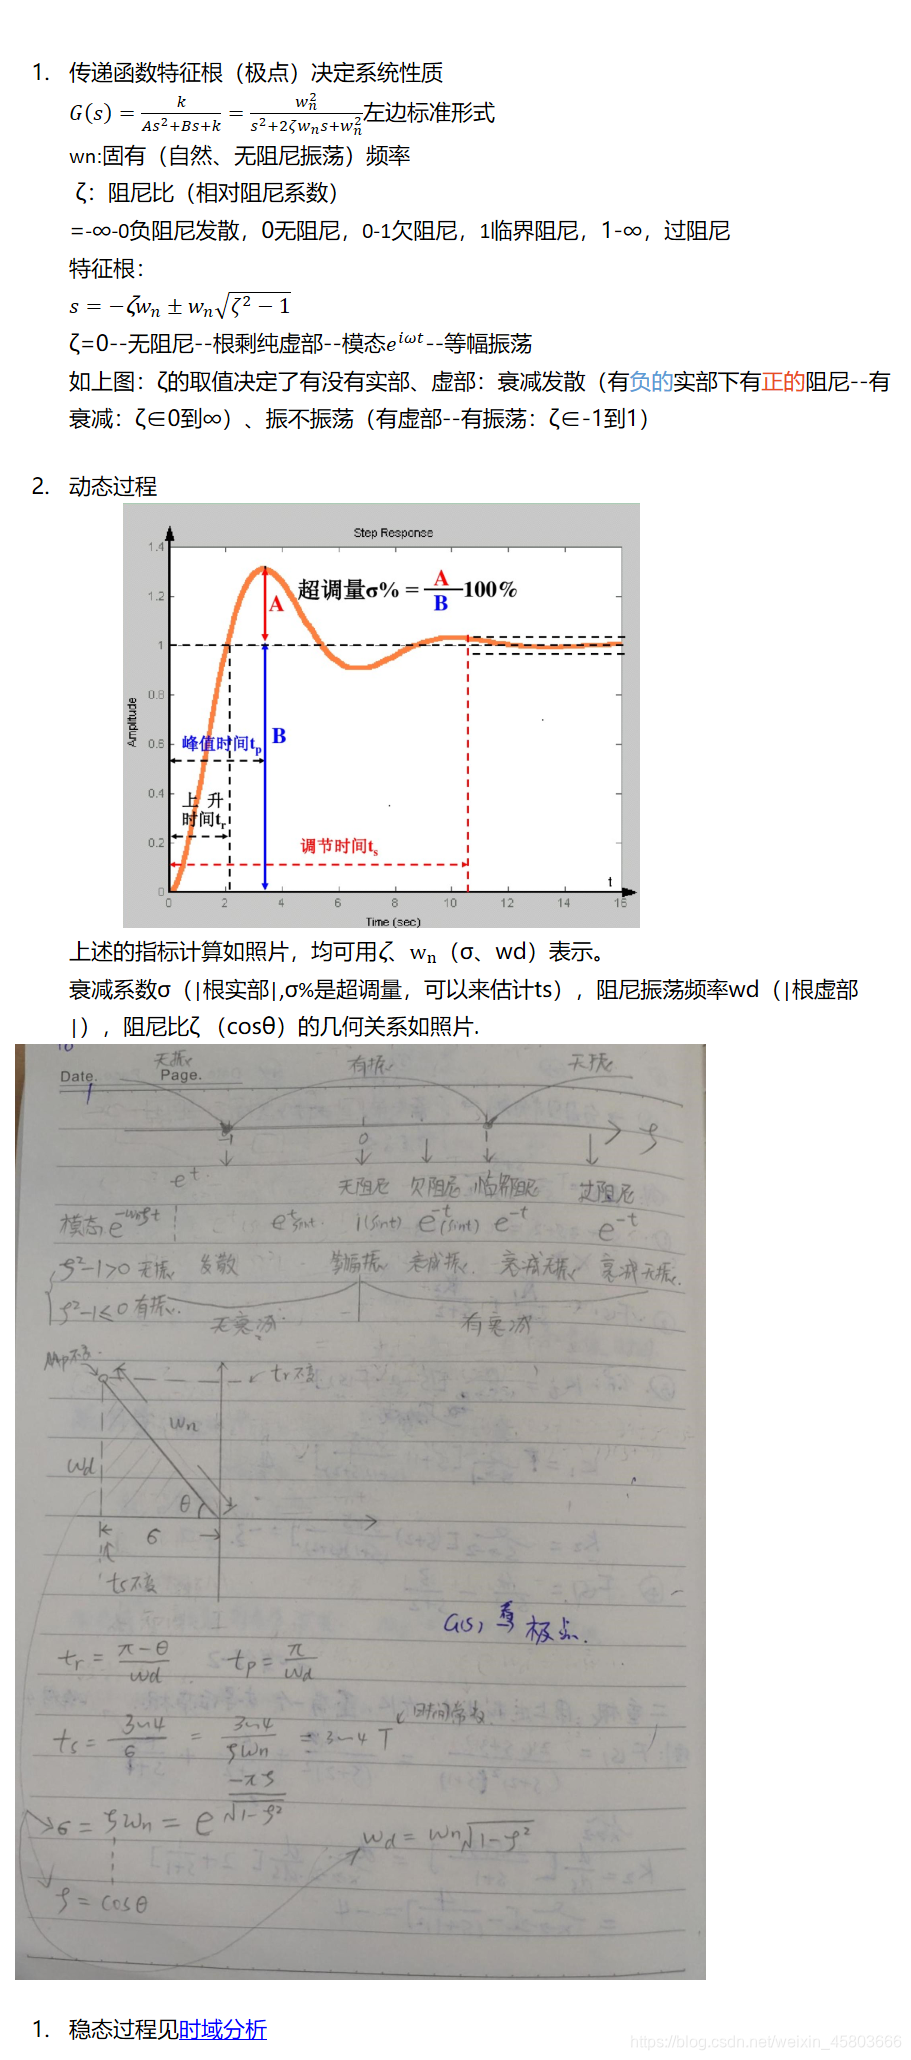 1. 传递函数特征根（极点）决定系统性质
G(s) = k/(As²+Bs+k) = w_n²/(s²+2ζw_n s+w_n²)左边标准形式
wn:固有（自然、无阻尼振荡）频率
ζ：阻尼比（相对阻尼系数）
=-∞-0负阻尼发散，0无阻尼，0-1欠阻尼，1临界阻尼，1-∞，过阻尼
特征根：
s = −ζw_n ± w_n√(ζ² − 1)
ζ=0--无阻尼--根剩纯虚部--模态e^{iωt}--等幅振荡
如上图：ζ的取值决定了有没有实部、虚部：衰减发散（有负的实部下有正的阻尼--有
衰减：ζ∈0到∞）、振不振荡（有虚部--有振荡：ζ∈-1到1）
2. 动态过程
Step Response
超调量σ% = A/B 100%
A
B
峰值时间tp
上 升
时间tr
调节时间ts
Amplitude
1.4
1.2
1
0.8
0.6
0.4
0.2
0
t
0 2 4 6 8 10 12 14 16
Time (sec)
上述的指标计算如照片，均可用ζ、wn（σ、wd）表示。
衰减系数σ（|根实部|,σ%是超调量，可以来估计ts），阻尼振荡频率wd（|根虚部
|），阻尼比ζ （cosθ）的几何关系如照片.
无振 有振 无振
Date. Page.
-1 0 1 ζ
e^t 无阻尼 欠阻尼 临界阻尼 过阻尼
模态 e^{-wnζt} e^t sint 1(sint) e^{-t}(sint) e^{-t} e^{-t}
ζ²-1>0 无振 发散 等幅振 衰减振 衰减无振 衰减无振
ζ²-1≤0 有振 无衰减 有衰减
Mp不变 tr不变
wn
wd
θ
σ
ts不变
G(s) 看 极点.
tr = (π-θ)/wd tp = π/wd
ts = 3~4/σ = 3~4/ζwn = 3~4 T 时间常数
σ = ζwn = e^{-πζ/√(1-ζ²)} wd = wn√(1-ζ²)
ζ = cosθ
1. 稳态过程见时域分析
https://blog.csdn.net/weixin_45803666